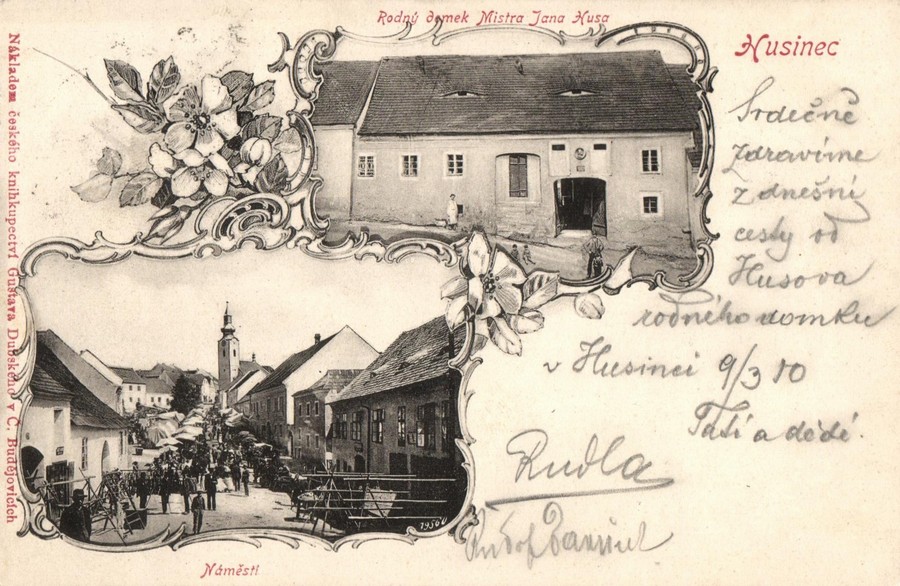 Rodný domek Mistra Jana Husa
Husinec
Nákladem českého knihkupectví Gustava Dubského v Č. Budějovicích
Srdečně
zdravíme
z dnešní
cesty od
Husova
rodného domku
v Husinci 9/3 10
Tati a dědé.
Rudla
Rudof
1950
Náměstí